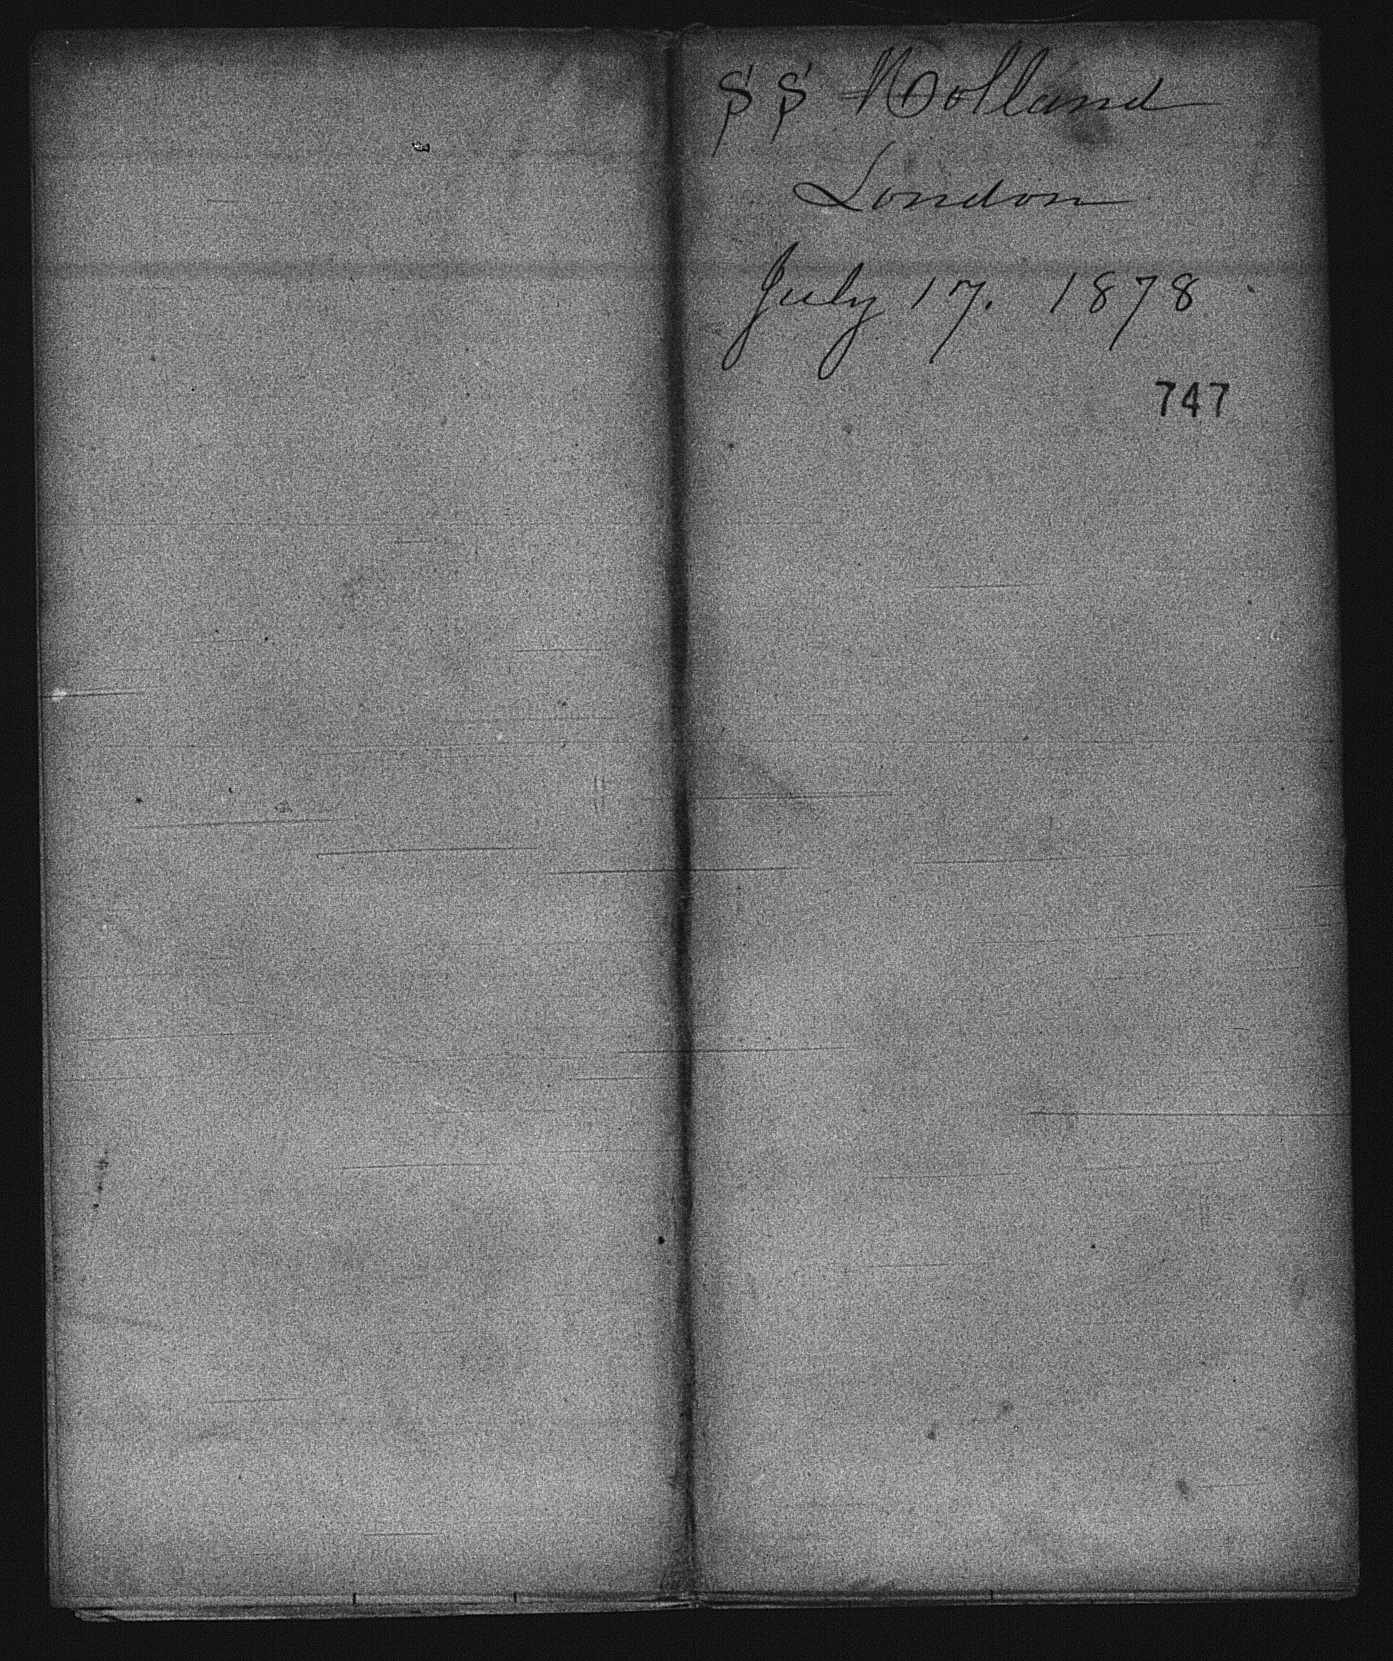 SS Holland
London
July 17. 1878
747